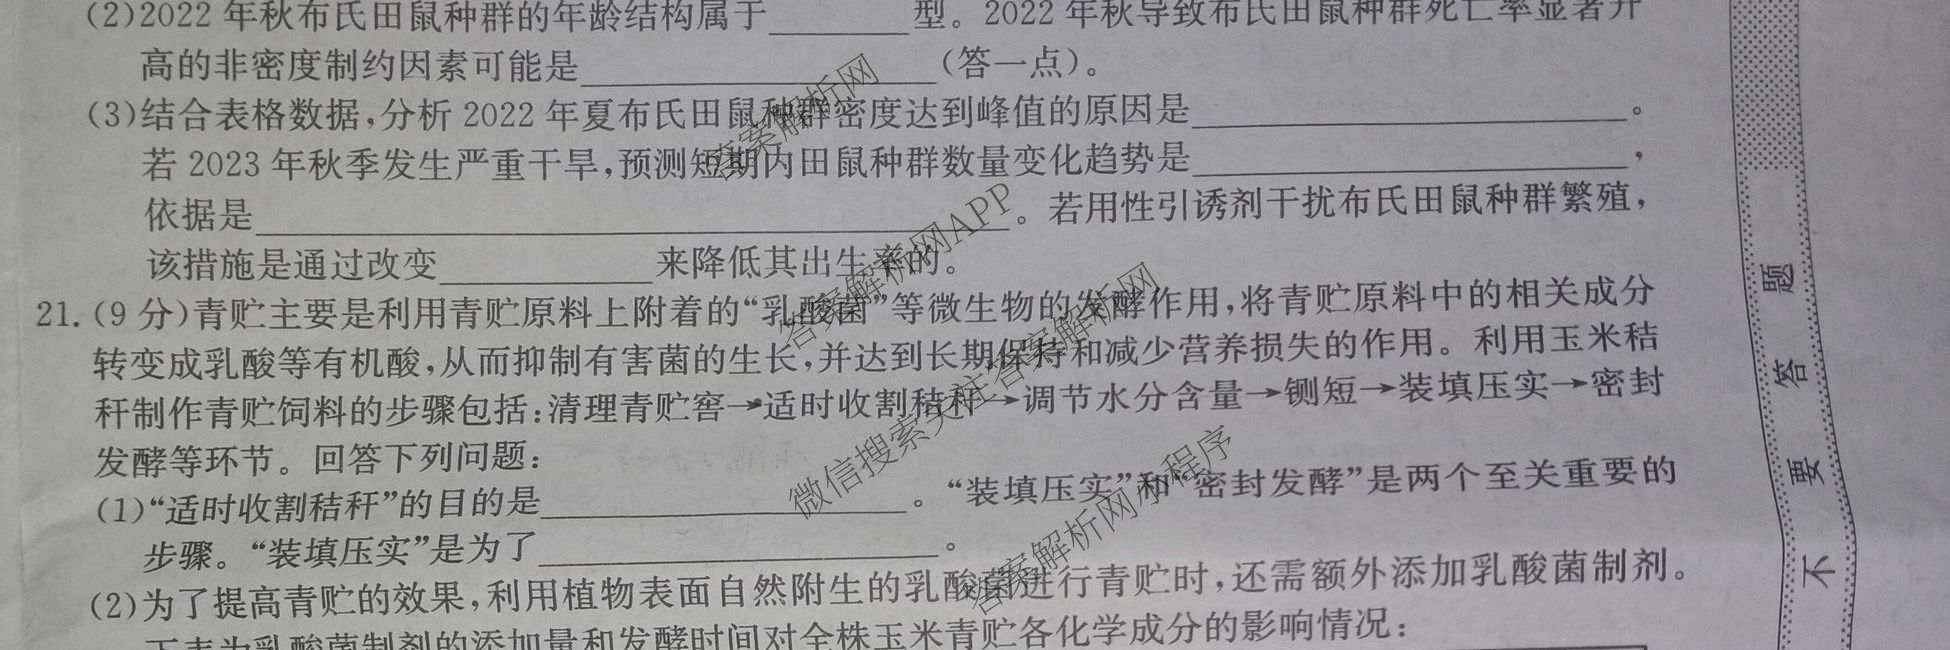 (2)2022年秋布氏田鼠种群的年龄结构属于________型。2022年秋导致布氏田鼠种群死亡率显著升
高的非密度制约因素可能是________(答一点)。
(3)结合表格数据,分析2022年夏布氏田鼠种群密度达到峰值的原因是________。
若2023年秋季发生严重干旱,预测短期内田鼠种群数量变化趋势是________,
依据是________。若用性引诱剂干扰布氏田鼠种群繁殖,
该措施是通过改变________来降低其出生率的。
21.(9分)青贮主要是利用青贮原料上附着的“乳酸菌”等微生物的发酵作用,将青贮原料中的相关成分
转变成乳酸等有机酸,从而抑制有害菌的生长,并达到长期保持和减少营养损失的作用。利用玉米秸
秆制作青贮饲料的步骤包括:清理青贮窖→适时收割秸秆→调节水分含量→铡短→装填压实→密封
发酵等环节。回答下列问题:
(1)“适时收割秸秆”的目的是________。“装填压实”和“密封发酵”是两个至关重要的
步骤。“装填压实”是为了________。
(2)为了提高青贮的效果,利用植物表面自然附生的乳酸菌进行青贮时,还需额外添加乳酸菌制剂。
下表为乳酸菌制剂的添加量和发酵时间对全株玉米青贮各化学成分的影响情况:
题
答
要
不
答案解析网
答案解析网APP
微信搜索关注答案解析网
答案解析网小程序